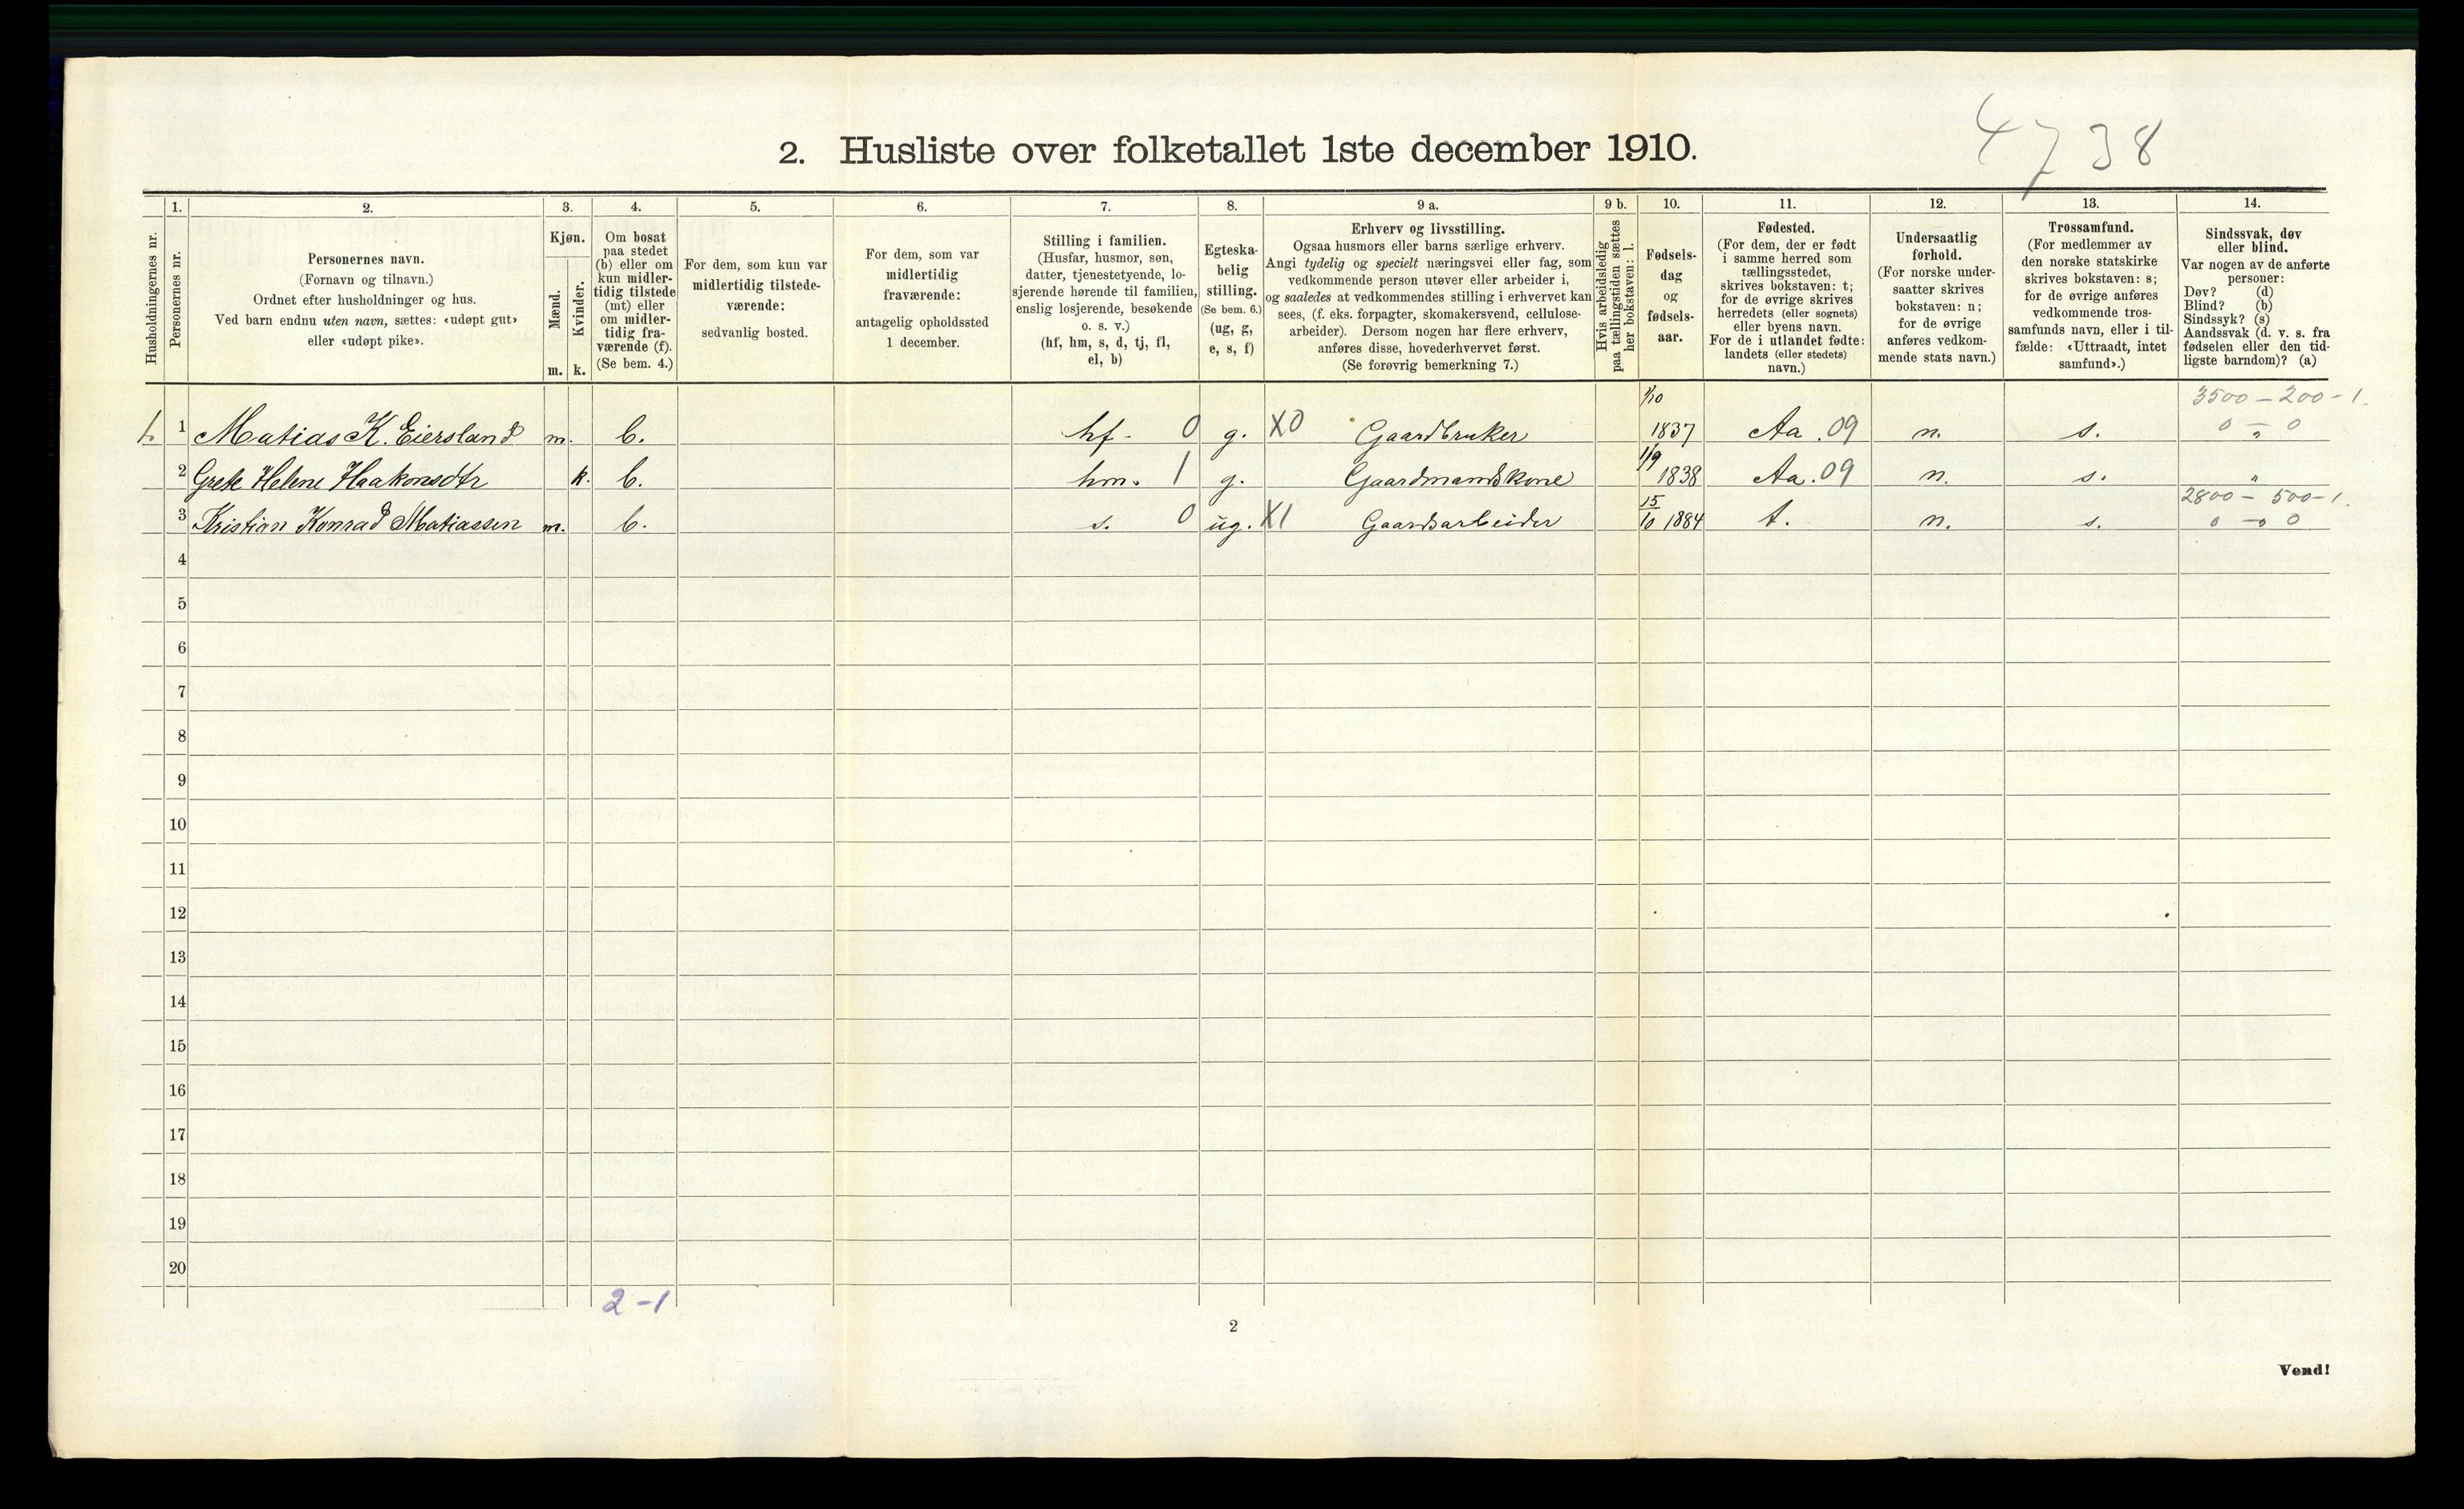 4738
2. Husliste over folketallet 1ste december 1910.
Husholdningernes nr.
1.
Personernes nr.
2.
Personernes navn.
(Fornavn og tilnavn.)
Ordnet efter husholdninger og hus.
Ved barn endnu uten navn, sættes: «udøpt gut»
eller «udøpt pike».
3.
Kjøn.
Mænd.
Kvinder.
m. k.
4.
Om bosat
paa stedet
(b) eller om
kun midler-
tidig tilstede
(mt) eller
om midler-
tidig fra-
værende (f).
(Se bem. 4.)
5.
For dem, som kun var
midlertidig tilstede-
værende:
sedvanlig bosted.
6.
For dem, som var
midlertidig
fraværende:
antagelig opholdssted
1 december.
7.
Stilling i familien.
(Husfar, husmor, søn,
datter, tjenestetyende, lo-
sjerende hørende til familien,
enslig losjerende, besøkende
o. s. v.)
(hf, hm, s, d, tj, fl,
el, b)
8.
Egteska-
belig
stilling.
(Se bem. 6.)
(ug, g,
e, s, f)
9 a.
Erhverv og livsstilling.
Ogsaa husmors eller barns særlige erhverv.
Angi tydelig og specielt næringsvei eller fag, som
vedkommende person utøver eller arbeider i,
og saaledes at vedkommendes stilling i erhvervet kan
sees, (f. eks. forpagter, skomakersvend, cellulose-
arbeider). Dersom nogen har flere erhverv,
anføres disse, hovederhvervet først.
(Se forøvrig bemerkning 7.)
9 b.
Hvis arbeidsledig
paa tællingstiden sættes
her bokstaven: l.
10.
Fødsels-
dag
og
fødsels-
aar.
11.
Fødested.
(For dem, der er født
i samme herred som
tællingsstedet,
skrives bokstaven: t;
for de øvrige skrives
herredets (eller sognets)
eller byens navn.
For de i utlandet fødte:
landets (eller stedets)
navn.)
12.
Undersaatlig
forhold.
(For norske under-
saatter skrives
bokstaven: n;
for de øvrige
anføres vedkom-
mende stats navn.)
13.
Trossamfund.
(For medlemmer av
den norske statskirke
skrives bokstaven: s;
for de øvrige anføres
vedkommende tros-
samfunds navn, eller i til-
fælde: «Uttraadt, intet
samfund».)
14.
Sindssvak, døv
eller blind.
Var nogen av de anførte
personer:
Døv? (d)
Blind? (b)
Sindssyk? (s)
Aandssvak (d. v. s. fra
fødselen eller den tid-
ligste barndom)? (a)
1/10 3500 – 200 – 1.
1. 1 Matias K. Eiersland m. b. hf. 0 g. X0 Gaardbruker 1837 Aa. 09 n. s. 0 – 0
2 Grete Helene Haakonsdtr k. b. hm. 1 g. Gaardmandskone 1/9 1838 Aa. 09 n. s. "
2800 – 500 – 1.
3 Kristian Konrad Matiassen m. b. s. 0 ug. X1 Gaardsarbeider 15/10 1884 t. n. s. 0 – 0
4
5
6
7
8
9
10
11
12
13
14
15
16
17
18
19
20
2 – 1
2
Vend!